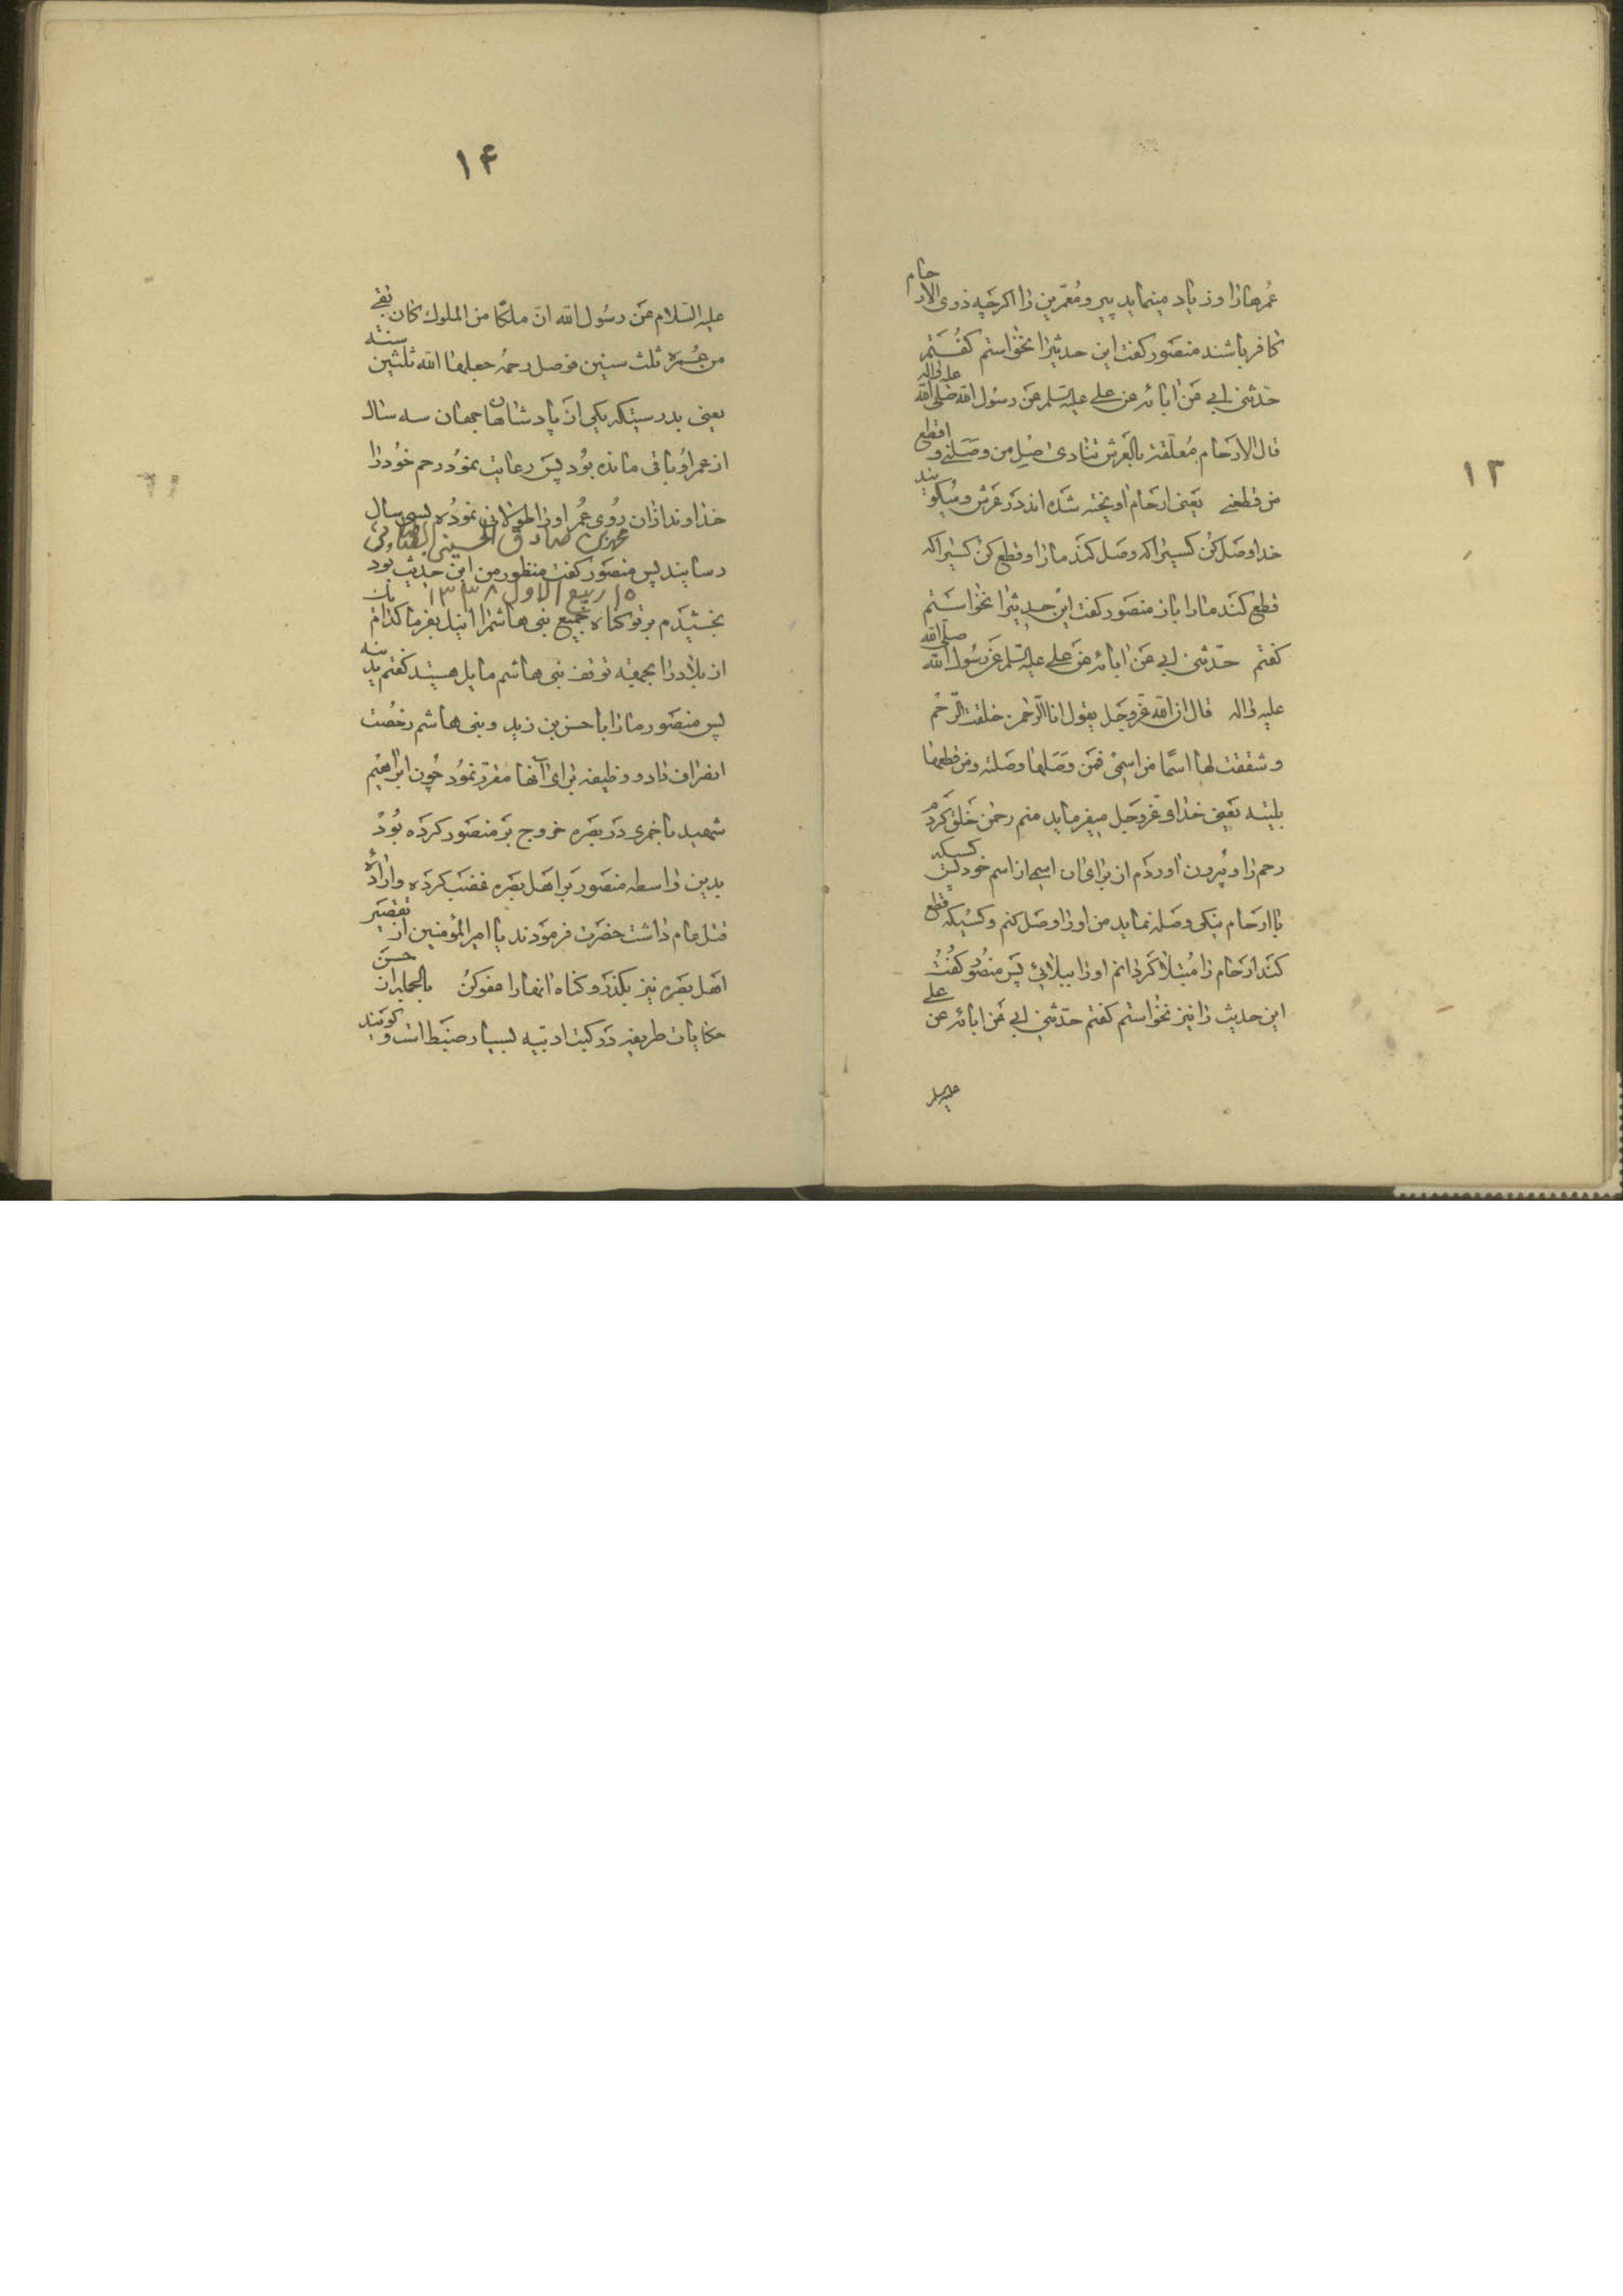 ۱۳
عُمرها را و زیاد مینماید پیر و مُعمّرین را اکرچه ذوی الارحام
کافر باشند منصور کفت این حدیثرا نخواستم کفُتم
حدّثنی ابی عَن ابائه عن علی علیه السّلم عن رسول الله صَلی الله علیه واله
قال الارحام مُعلّقة بالعَرش تنادی صِل من وصَلنی و اقطع
من قطعنی یَعنی ارحام اویخته شَده اند در عَرش و میکویند
خدا وصَل کُن کسیرا که وصَل کنَد ما را و قطع کن کسیرا که
قطع کنَد ما را باز منصَور کفت این حدیثرا نخواستَم
کفتم حدّثنی ابی عَن ابائه عَن علی علیه السّلم عَن رسُول الله صلی الله
علیه واله قال ان الله عَزوجَل یقول انا الرّحمن خلقت الرّحم
و شققت لها اسمًا من اسمی فمَن وَصَلها وصَلته و من قطعها
بلیته یَعنی خدای عَزوجَل میفرماید منم رحمن خَلق کَردم
رحم را و بُیرون اوردَم از برای ان اسمی از اسم خود پس کسیکه
با ارحام نیکی وصَله نماید من او را وصَل کنم و کسیکه قطع
کنَد ارحام را مُبتلا کردانم او را ببلائی پَس منصُور کفُت
این حدیث را نیز نخواستم کفتم حدّثنی ابی عَن ابائه عن علی
علیه السلم
۱۴
علیه السّلام عَن رسُول الله انّ ملکًا من الملوک کان بقی
من عُمره ثلث سنین فوصل رحمُه جعلها الله ثلثین سنته
یعنی بدرستیکه یکی از پادشاهان جهان سه سال
از عمر او باقی مانده بوُد پسَ رعایت نموُد رحم خوُدرا
خداوند از ان رُوی عُمر او را طولانی نمودُه بسی سال
محمد بن صادق الحسینی الطباطبائی
رسانید پس منصَور کفت منظور من این حدیث بُود
۱۵ ربیع الاول ۱۳۳۸
بخشیدَم بر تو کناه جَمیع بنی هاشمرا اینک بفرما کدام یک
از بلاد را بجهة توقف بنی هاشم مایل هستید کفتم مدینه
پس منصَور ما را با حسن بن زید و بنی هاشم رخصُت
انصراف داد و وظیفه برای آنها مقرّر نموُد چُون ابراهیم
شهید باخمری دَر بصَره خروج بَر منصَور کردَه بُود
بدین واسطه منصَور بَر اهَل بصَره غضَب کردَه و ارادهٔ
قتل عام داشت حضَرت فرموَدند یا امیر المؤمنین از تقصیَر
اهَل بصَره نیز بکذَر و کناه انها را عفو کنُ بالجمله از حسَن
حکایات طریفه دَر کتب ادبیّه بسیار ضَبط است و کویَند